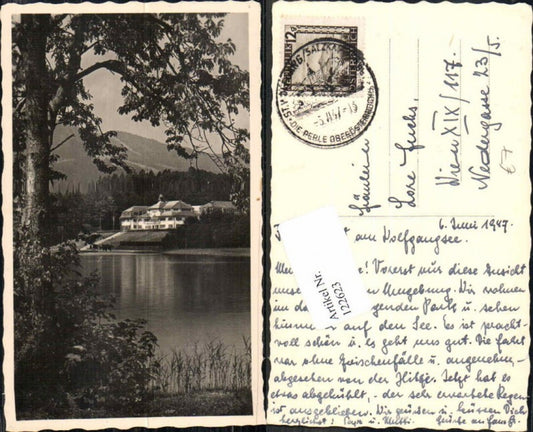 12g
ÖSTERREICH
-5.VI.47.-15
DIE PERLE OBERÖSTERREICHS
Fräulein
Lore Fuchs.
Wien XIX/117.
Nedergasse 23/5.
67
6. Juni 1947.
am Wolfgangsee.
Artikel Nr.
122623
! Vorerst nur diese Ansicht
Umgebung. Wir wohnen
genden Park u. sehen
auf den See. Es ist pracht-
voll schön u. es geht uns gut. Die Fahrt
war ohne Zwischenfälle u. angenehm,
abgesehen von der Hitze. Jetzt hat es
etwas abgekühlt, - der sehr erwartete Regen
ist ausgeblieben. Wir grüßen u. küssen Dich
herzlichst: Papa u. Mutti.